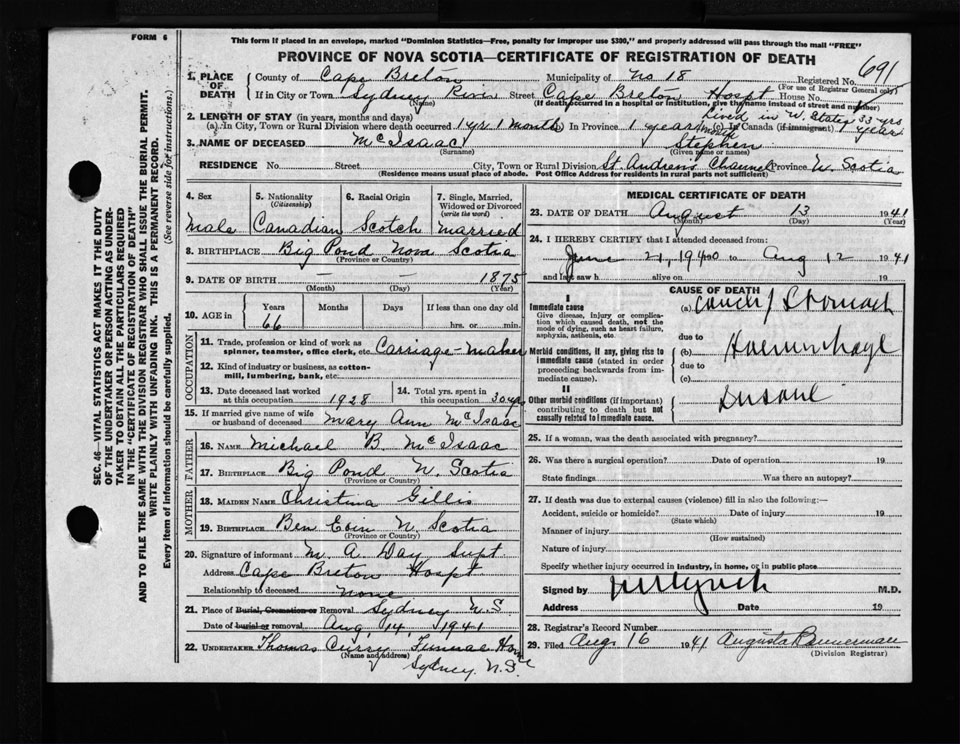 FORM 6
This form if placed in an envelope, marked "Dominion Statistics—Free, penalty for improper use $300," and properly addressed will pass through the mail "FREE"
PROVINCE OF NOVA SCOTIA—CERTIFICATE OF REGISTRATION OF DEATH
691
1. PLACE OF DEATH County of Cape Breton Municipality of No 18 Registered No.
(For use of Registrar General only)
If in City or Town Sydney River Street Cape Breton Hospt House No.
(Name) (If death occurred in a hospital or institution, give the name instead of street and number)
Lived in U. States 33 yrs
2. LENGTH OF STAY (in years, months and days)
(a) In City, Town or Rural Division where death occurred 1 yr 1 month In Province 1 year 1 month (c) In Canada (if immigrant) 1 year
3. NAME OF DECEASED McIsaac Stephen
(Surname) (Given name or names)
RESIDENCE No. Street City, Town or Rural Division St. Andrews Channel Province N. Scotia
(Residence means usual place of abode. Post Office Address for residents in rural parts not sufficient)
4. Sex 5. Nationality (Citizenship) 6. Racial Origin 7. Single, Married, Widowed or Divorced (write the word)
Male Canadian Scotch Married
8. BIRTHPLACE Big Pond Nova Scotia
(Province or Country)
9. DATE OF BIRTH — — 1875
(Month) (Day) (Year)
10. AGE in Years Months Days If less than one day old
66 hrs. or min.
OCCUPATION
11. Trade, profession or kind of work as spinner, teamster, office clerk, etc. Carriage-Maker
12. Kind of industry or business, as cotton-mill, lumbering, bank, etc.
13. Date deceased last worked at this occupation 1928 14. Total yrs. spent in this occupation 30 yr
15. If married give name of wife or husband of deceased Mary Ann McIsaac
FATHER
16. NAME Michael B. McIsaac
17. BIRTHPLACE Big Pond N. Scotia
MOTHER
18. MAIDEN NAME Christina Gillis
19. BIRTHPLACE Ben Eoin N. Scotia
(Province or Country)
20. Signature of informant M. A. Day Supt
Address Cape Breton Hospt
Relationship to deceased None
21. Place of Burial, Cremation or Removal Sydney N.S
Date of burial or removal Aug. 14, 1941
22. UNDERTAKER Thomas Curry Funeral Home
(Name and address)
Sydney N.S.
MEDICAL CERTIFICATE OF DEATH
23. DATE OF DEATH August 13 1941
(Month) (Day) (Year)
24. I HEREBY CERTIFY that I attended deceased from:
June 21, 1940 to Aug 12 1941
and last saw h alive on 19
CAUSE OF DEATH
I
Immediate cause
Give disease, injury or complication which caused death, not the mode of dying, such as heart failure, asphyxia, asthenia, etc.
(a) Cancer of Stomach
due to
Morbid conditions, if any, giving rise to immediate cause (stated in order proceeding backwards from immediate cause).
(b) Haemorrhage
due to
(c)
II
Other morbid conditions (if important) contributing to death but not causally related to immediate cause.
Insane
25. If a woman, was the death associated with pregnancy?
26. Was there a surgical operation? Date of operation 19
State findings Was there an autopsy?
27. If death was due to external causes (violence) fill in also the following:—
Accident, suicide or homicide? Date of injury 19
(State which)
Manner of injury
(How sustained)
Nature of injury
Specify whether injury occurred in industry, in home, or in public place
Signed by Lynch M.D.
Address Date 19
28. Registrar's Record Number
29. Filed Aug 16 1941 Augusta Bannerman
(Division Registrar)
SEC. 46—VITAL STATISTICS ACT MAKES IT THE DUTY
OF THE UNDERTAKER OR PERSON ACTING AS UNDER-
TAKER TO OBTAIN ALL THE PARTICULARS REQUIRED
IN THE "CERTIFICATE OF REGISTRATION OF DEATH"
AND TO FILE THE SAME WITH THE DIVISION REGISTRAR WHO SHALL ISSUE THE BURIAL PERMIT.
WRITE PLAINLY WITH UNFADING INK. THIS IS A PERMANENT RECORD.
Every item of information should be carefully supplied. (See reverse side for instructions.)